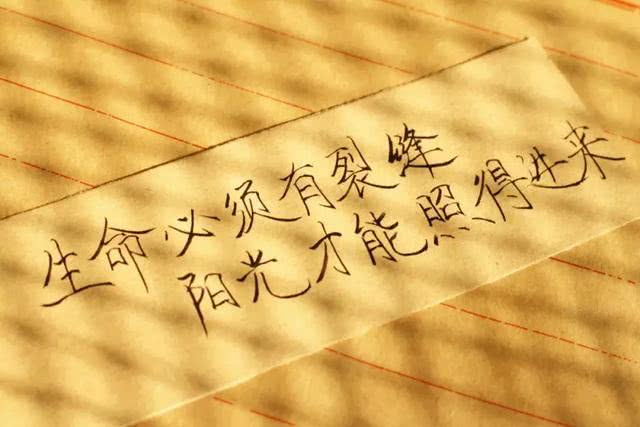 生命必须有裂缝
阳光才能照得进来